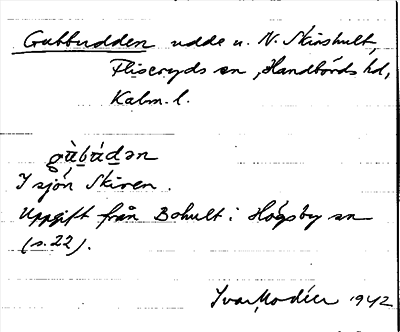 Gubbudden udde u. N. Skinshult,
Fliseryds sn, Handbörds hd,
Kalm. l.
gàbádən
I sjön Skiren.
Uppgift från Bohult i Högsby sn
(s. 22).
Ivar Modéer 1942